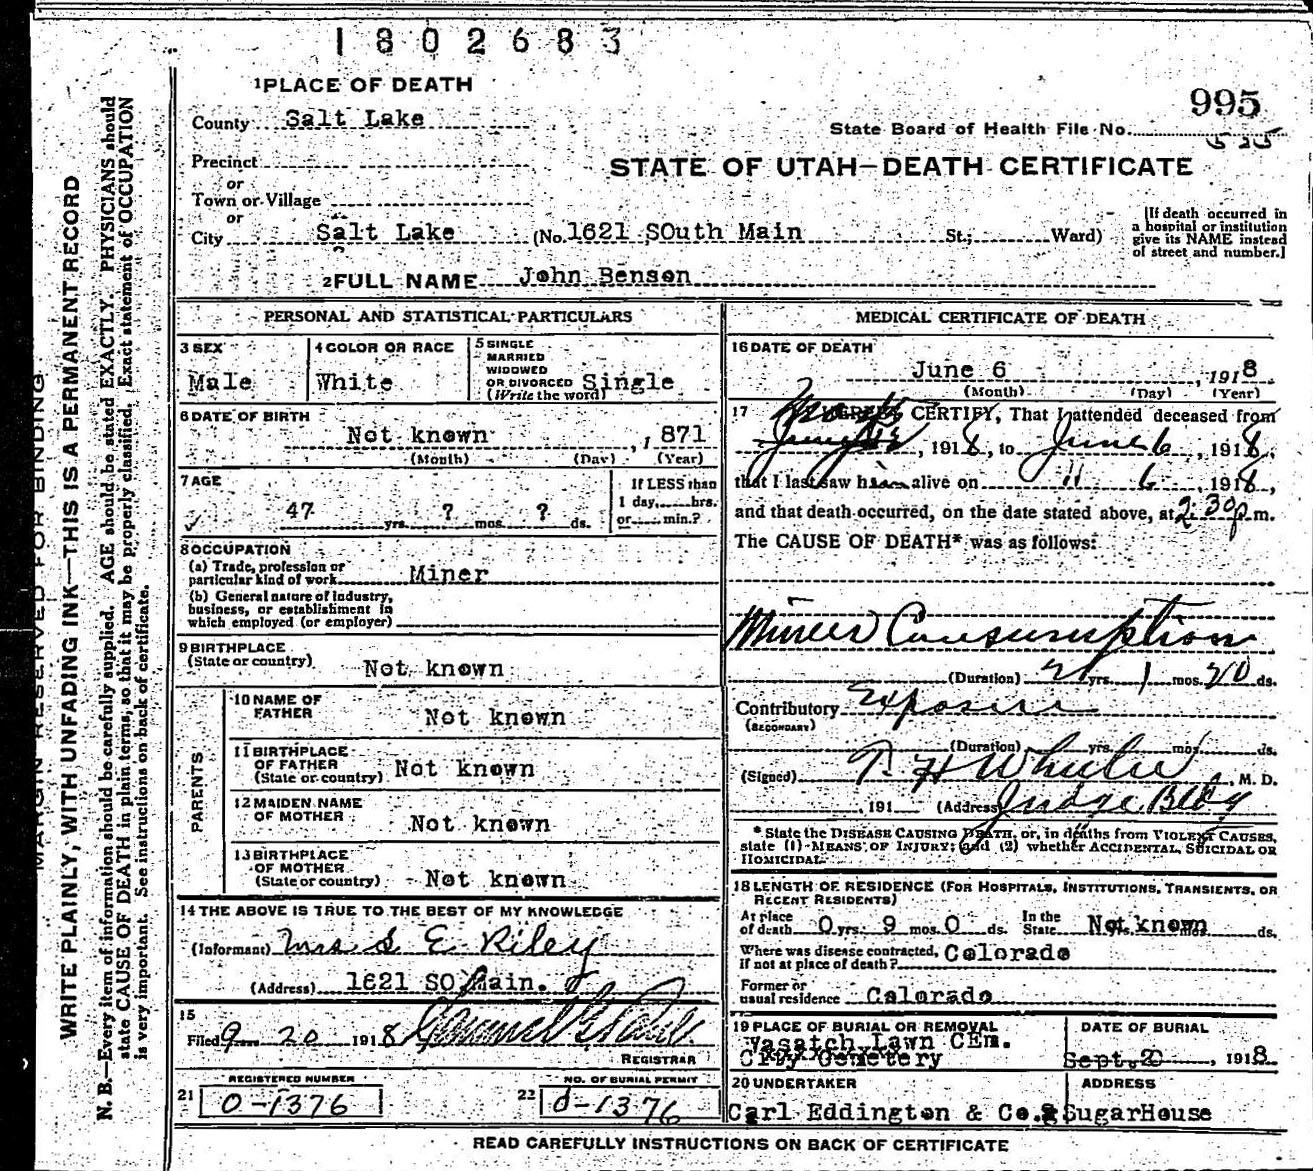 1802683
1 PLACE OF DEATH
995
County Salt Lake
State Board of Health File No. 535
Precinct
or
STATE OF UTAH—DEATH CERTIFICATE
Town or Village
or
City Salt Lake (No. 1621 SOuth Main St.; Ward)
[If death occurred in
a hospital or institution
give its NAME instead
of street and number.]
2 FULL NAME John Benson
MARGIN RESERVED FOR BINDING
WRITE PLAINLY, WITH UNFADING INK—THIS IS A PERMANENT RECORD
N. B.—Every item of information should be carefully supplied. AGE should be stated EXACTLY. PHYSICIANS should
state CAUSE OF DEATH in plain terms, so that it may be properly classified. Exact statement of OCCUPATION
is very important. See instructions on back of certificate.
PERSONAL AND STATISTICAL PARTICULARS
3 SEX
Male
4 COLOR OR RACE
White
5 SINGLE
MARRIED
WIDOWED
OR DIVORCED Single
(Write the word)
6 DATE OF BIRTH
Not known, 1871
(Month) (Day) (Year)
7 AGE
47 yrs. ? mos. ? ds.
If LESS than
1 day, hrs.
or min.?
8 OCCUPATION
(a) Trade, profession or
particular kind of work Miner
(b) General nature of industry,
business, or establishment in
which employed (or employer)
9 BIRTHPLACE
(State or country) Not known
PARENTS
10 NAME OF
FATHER Not known
11 BIRTHPLACE
OF FATHER
(State or country) Not known
12 MAIDEN NAME
OF MOTHER Not known
13 BIRTHPLACE
OF MOTHER
(State or country) Not known
14 THE ABOVE IS TRUE TO THE BEST OF MY KNOWLEDGE
(Informant) Mrs S E Riley
(Address) 1621 SO Main.
15
Filed 9 20 1918
REGISTRAR
REGISTERED NUMBER
21 O-1376
NO. OF BURIAL PERMIT
22 d-1376
MEDICAL CERTIFICATE OF DEATH
16 DATE OF DEATH
June 6, 1918
(Month) (Day) (Year)
17 I HEREBY CERTIFY, That I attended deceased from
, 1918, to June 6, 1918,
that I last saw him alive on 11 6, 1918,
and that death occurred, on the date stated above, at 2:30 p m.
The CAUSE OF DEATH* was as follows:
Miners Consumption
(Duration) 2 yrs. 1 mos. 20 ds.
Contributory Exposure
(SECONDARY)
(Duration) yrs. mos. ds.
(Signed) T. H Wheeler, M. D.
, 191 (Address) Judge Bldg
* State the DISEASE CAUSING DEATH, or, in deaths from VIOLENT CAUSES,
state (1) MEANS OF INJURY; and (2) whether ACCIDENTAL, SUICIDAL OR
HOMICIDAL.
18 LENGTH OF RESIDENCE (FOR HOSPITALS, INSTITUTIONS, TRANSIENTS, OR
RECENT RESIDENTS)
At place
of death 0 yrs. 9 mos. 0 ds. In the
State Not known ds.
Where was disease contracted,
if not at place of death? Colorado
Former or
usual residence Colorado
19 PLACE OF BURIAL OR REMOVAL
Wasatch Lawn CEm.
City Cemetery
DATE OF BURIAL
Sept. 20, 1918
20 UNDERTAKER
Carl Eddington & Co.
ADDRESS
SugarHouse
READ CAREFULLY INSTRUCTIONS ON BACK OF CERTIFICATE